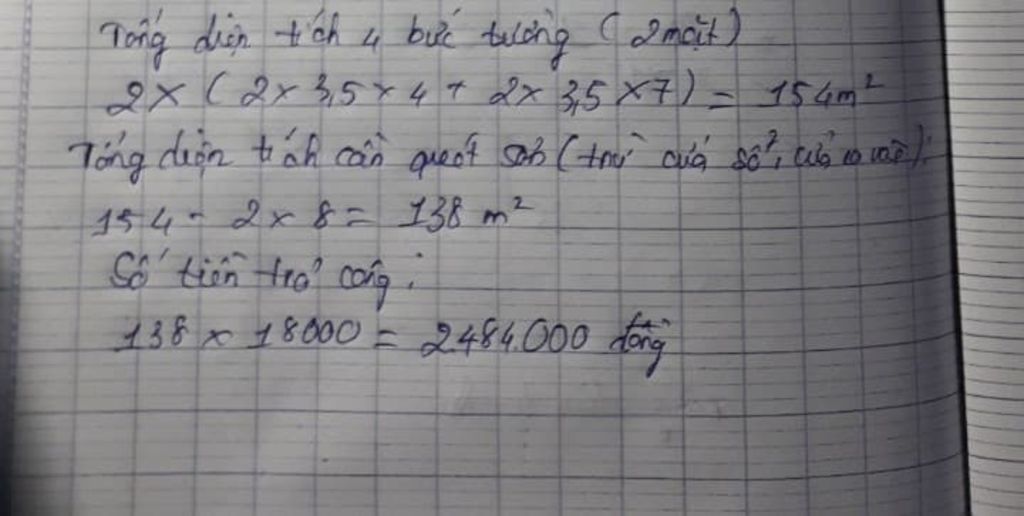 Tổng diện tích 4 bức tường (2 mặt)
2 x (2 x 3,5 x 4 + 2 x 3,5 x 7) = 154m²
Tổng diện tích cần quét sơn (trừ cửa sổ, cửa ra vào):
154 - 2 x 8 = 138 m²
Số tiền trả công:
138 x 18000 = 2484.000 đồng